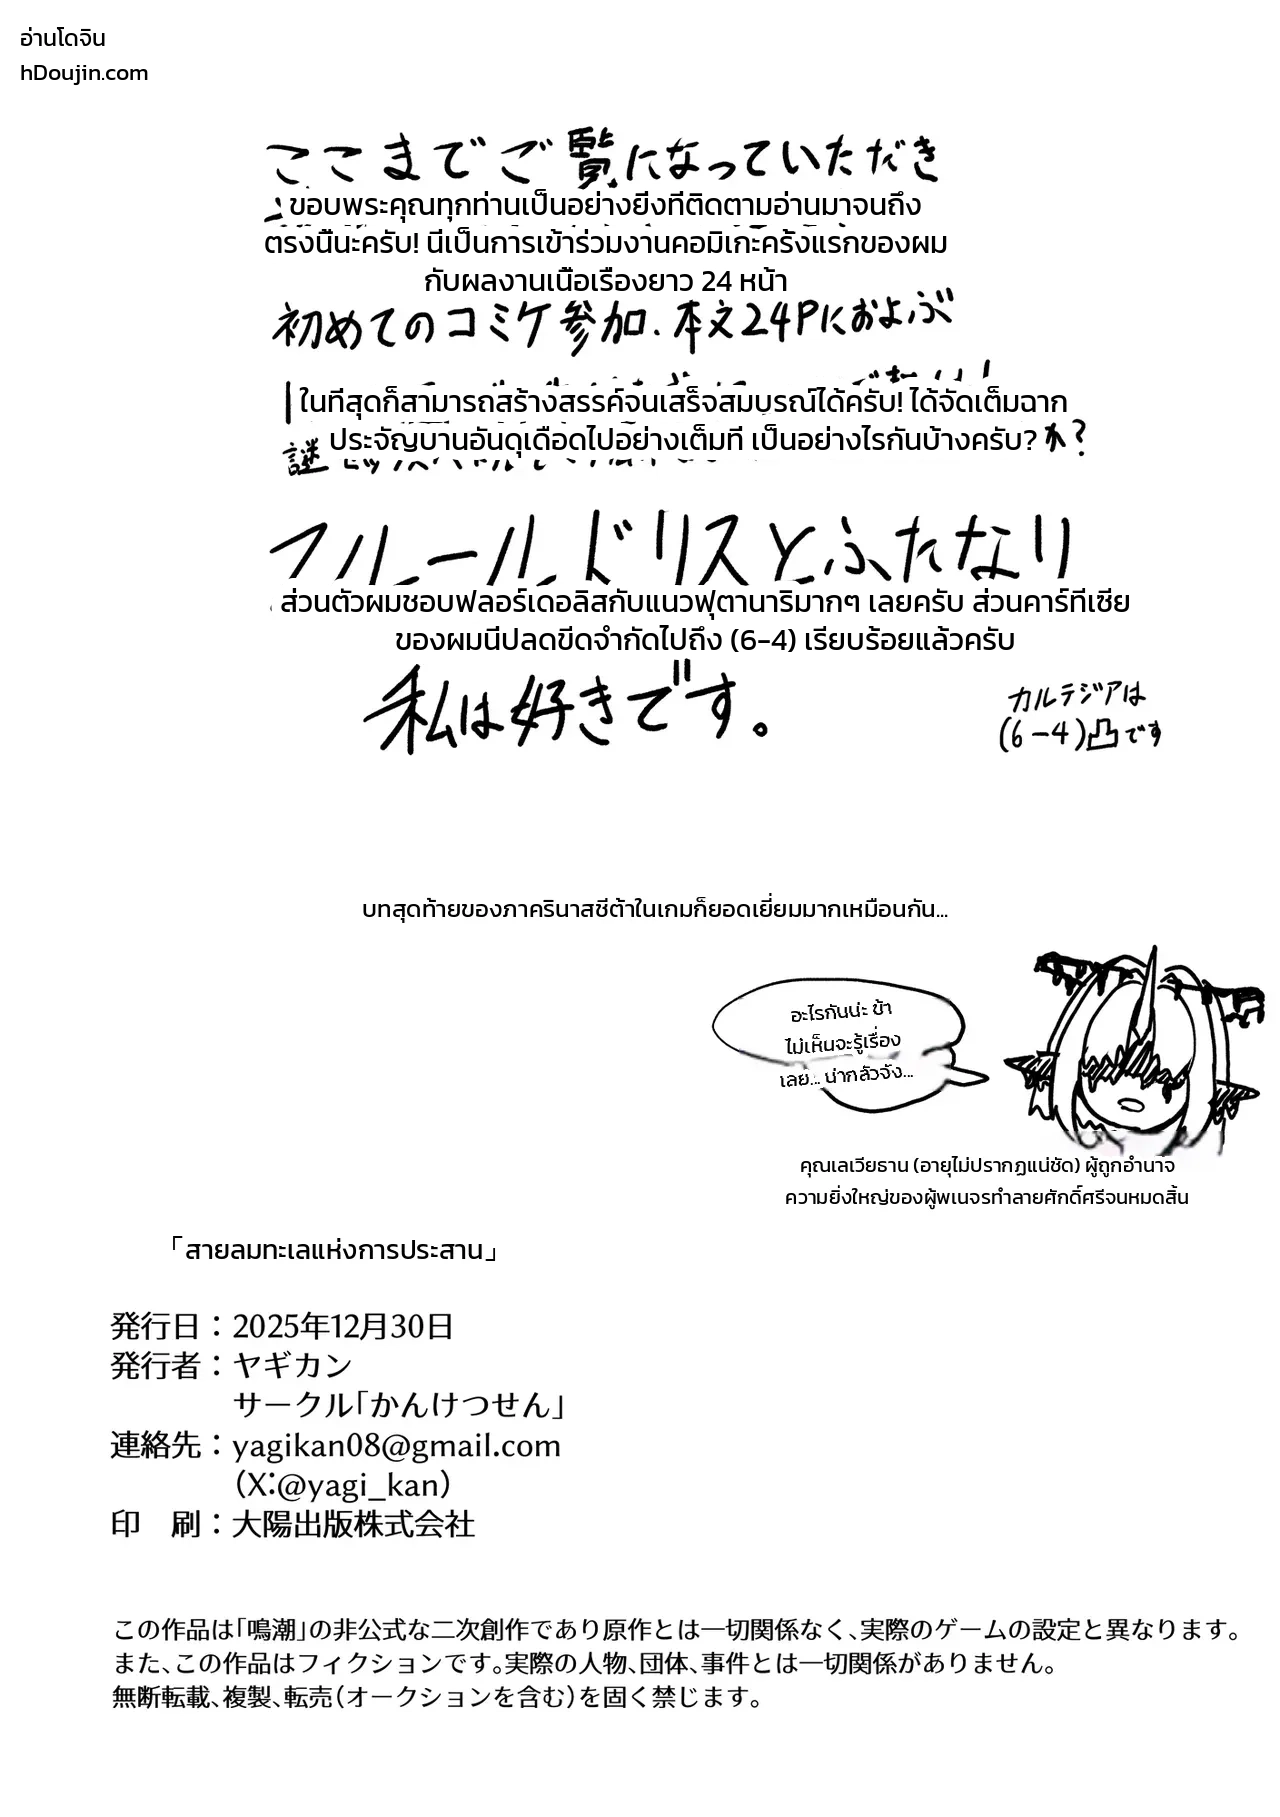 อ่านโดจิน
hDoujin.com
ここまでご覧になっていただき
ขอบพระคุณทุกท่านเป็นอย่างยิ่งที่ติดตามอ่านมาจนถึง
ตรงนี้นะครับ! นี่เป็นการเข้าร่วมงานคอมิเกะครั้งแรกของผม
กับผลงานเนื้อเรื่องยาว 24 หน้า
初めてのコミケ参加、本文24Pにおよぶ
ในที่สุดก็สามารถสร้างสรรค์จนเสร็จสมบูรณ์ได้ครับ! ได้จัดเต็มฉาก
ประจัญบานอันดุเดือดไปอย่างเต็มที่ เป็นอย่างไรกันบ้างครับ? か?
謎
フルールドリスとふたなり
ส่วนตัวผมชอบฟลอร์เดอลิสกับแนวฟุตานาริมากๆ เลยครับ ส่วนคาร์ทีเซีย
ของผมนี่ปลดขีดจำกัดไปถึง (6-4) เรียบร้อยแล้วครับ
私は好きです。
カルテジアは
(6-4)凸です
บทสุดท้ายของภาครินาสชีต้าในเกมก็ยอดเยี่ยมมากเหมือนกัน...
อะไรกันน่ะ ข้า
ไม่เห็นจะรู้เรื่อง
เลย... น่ากลัวจัง...
คุณเลเวียธาน (อายุไม่ปรากฏแน่ชัด) ผู้ถูกอำนาจ
ความยิ่งใหญ่ของผู้พเนจรทำลายศักดิ์ศรีจนหมดสิ้น
「สายลมทะเลแห่งการประสาน」
発行日：2025年12月30日
発行者：ヤギカン
サークル「かんけつせん」
連絡先：yagikan08@gmail.com
（X:@yagi_kan）
印　刷：大陽出版株式会社
この作品は「鳴潮」の非公式な二次創作であり原作とは一切関係なく、実際のゲームの設定と異なります。
また、この作品はフィクションです。実際の人物、団体、事件とは一切関係がありません。
無断転載、複製、転売（オークションを含む）を固く禁じます。